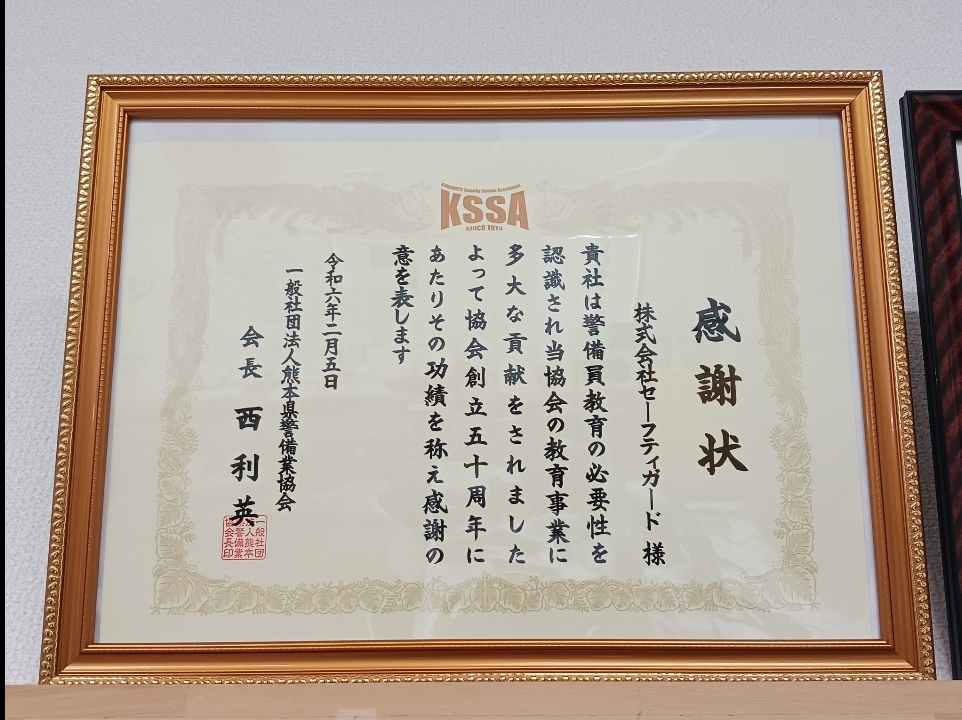 KUMAMOTO Security Service Association
KSSA
SINCE 1973
感謝状
株式会社セーフティガード 様
貴社は警備員教育の必要性を
認識され当協会の教育事業に
多大な貢献をされました
よって協会創立五十周年に
あたりその功績を称え感謝の
意を表します
令和六年二月五日
一般社団法人熊本県警備業協会
会長 西利英
一般社団
法人熊本
県警備業
協会会長印